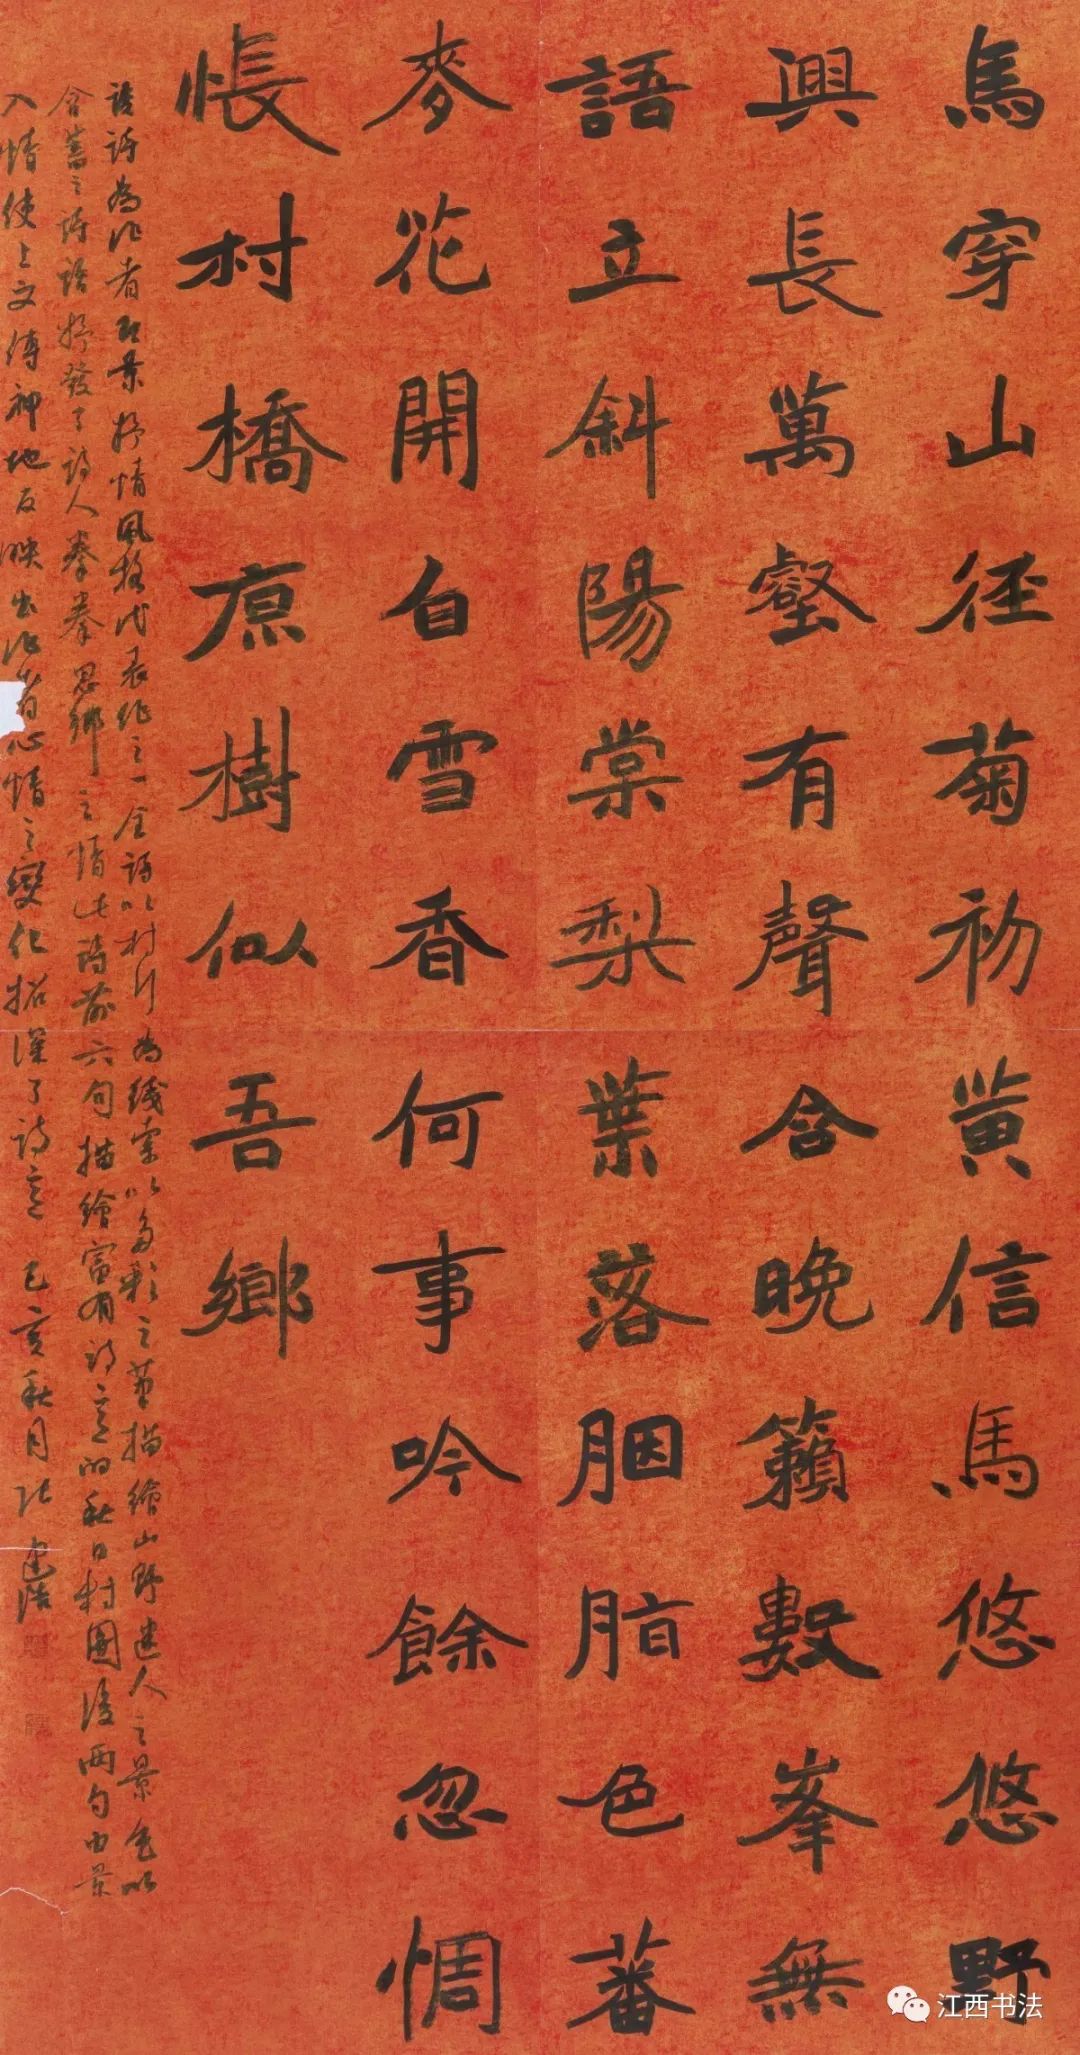 馬穿山徑菊初黄信馬悠悠野
興長萬壑有聲含晚籟數峯無
語立斜陽棠梨葉落胭脂色蕃
麥花開白雪香何事吟餘忽惆
悵村橋原樹似吾鄉
該詩為作者即景抒情風格代表作之一全詩以村行為线索以多彩之筆描繪山野迷人之景色以
含蓄之詩語抒發了詩人拳拳思鄉之情此詩前六句描繪富有詩意的秋日村圖後兩句由景
入情使上文傳神地反映出作者心情之變化拓深了詩意 己亥秋月
江西书法